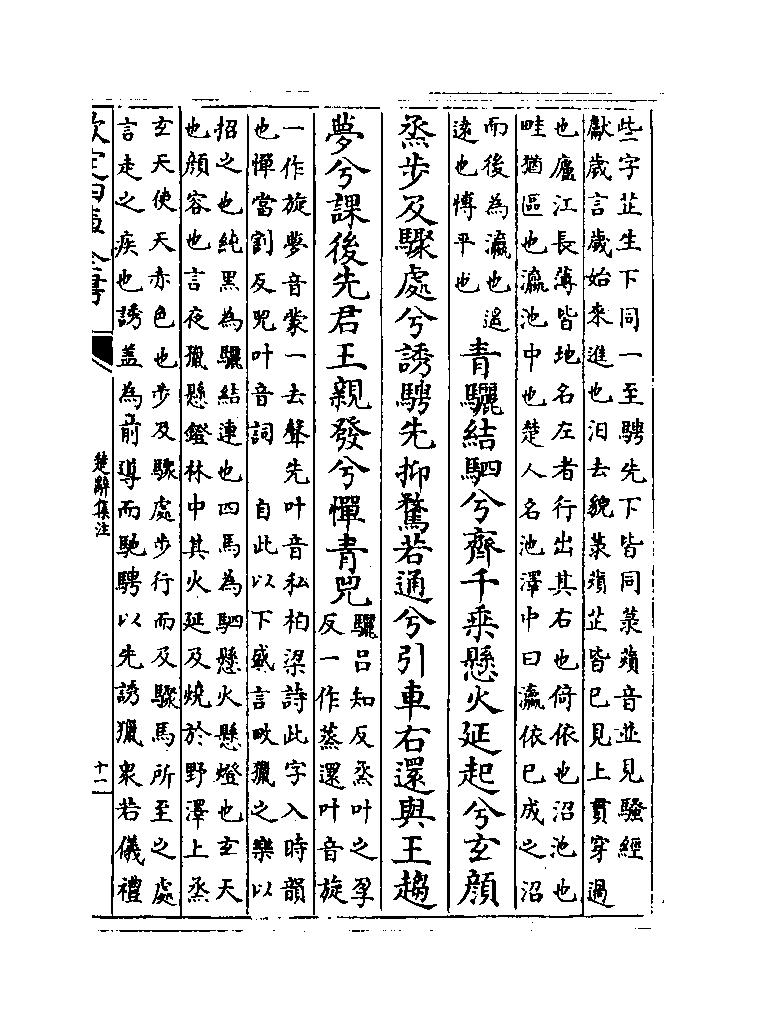 些字芷生下同一至騁先下皆同菉蘋音並見騷經
獻歲言歲始來進也汨去貌菉蘋芷皆已見上貫穿過
也廬江長薄皆地名左者行出其右也倚依也沼池也
畦猶區也瀛池中也楚人名池澤中曰瀛依已成之沼
而後為瀛也遥
遠也博平也
青驪結駟兮齊千乗懸火延起兮玄顔
烝步及驟處兮誘騁先抑騖若通兮引車右還與王趨
夢兮課後先君王親發兮憚青兕
驪吕知反烝叶之孕
反一作蒸還叶音旋
一作旋夢音蒙一去聲先叶音私柏梁詩此字入時韻
也憚當割反兕叶音詞　自此以下盛言畋獵之樂以
招之也純黑為驪結連也四馬為駟懸火懸燈也玄天
也顔容也言夜獵懸鐙林中其火延及燒於野澤上烝
玄天使天赤色也步及驟處步行而及驟馬所至之處
言走之疾也誘蓋為前導而馳騁以先誘獵衆若儀禮
欽定四庫全書
楚辭集注
十一